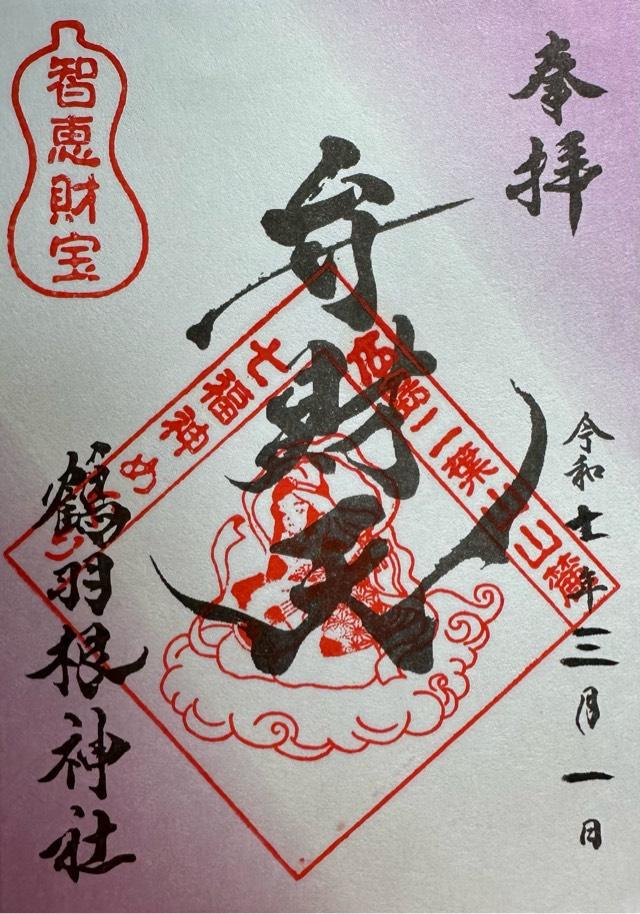 奉拝
令和七年三月一日
弁財天
智恵財宝
広島二葉山山麓
七福神めぐり
鶴羽根神社